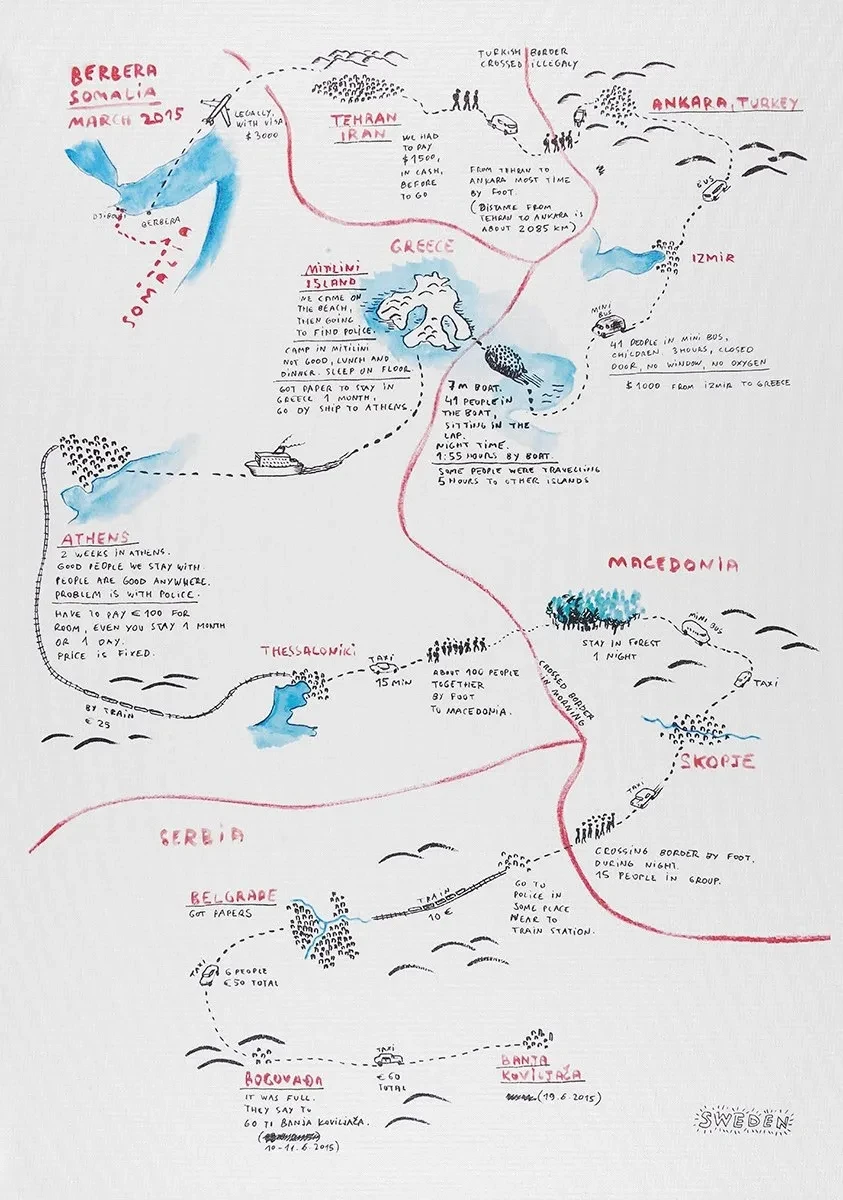 BERBERA
SOMALIA
MARCH 2015
LEGALLY,
WITH VISA
$ 3000
BERBERA
SOMALIA
TEHRAN
IRAN
WE HAD
TO PAY
$1500,
IN CASH,
BEFORE
TO GO
TURKISH BORDER
CROSSED ILLEGALY
FROM TEHRAN TO
ANKARA MOST TIME
BY FOOT.
(DISTANCE FROM
TEHRAN TO ANKARA IS
ABOUT 2085 KM)
ANKARA, TURKEY
BUS
IZMIR
MINI
BUS
41 PEOPLE IN MINI BUS,
CHILDREN. 3 HOURS, CLOSED
DOOR, NO WINDOW, NO OXYGEN
$1000 FROM IZMIR TO GREECE
GREECE
MITILINI
ISLAND
WE CAME ON
THE BEACH,
THEN GOING
TO FIND POLICE.
CAMP IN MITILINI
NOT GOOD, LUNCH AND
DINNER. SLEEP ON FLOOR
GOT PAPER TO STAY IN
GREECE 1 MONTH,
GO BY SHIP TO ATHENS.
7M BOAT.
41 PEOPLE IN
THE BOAT,
SITTING IN THE
LAP.
NIGHT TIME.
1:55 HOURS BY BOAT.
SOME PEOPLE WERE TRAVELLING
5 HOURS TO OTHER ISLANDS
ATHENS
2 WEEKS IN ATHENS.
GOOD PEOPLE WE STAY WITH.
PEOPLE ARE GOOD ANYWHERE.
PROBLEM IS WITH POLICE.
HAVE TO PAY €100 FOR
ROOM, EVEN YOU STAY 1 MONTH
OR 1 DAY.
PRICE IS FIXED.
BY TRAIN
€ 25
THESSALONIKI
TAXI
15 MIN
ABOUT 100 PEOPLE
TOGETHER
BY FOOT
TO MACEDONIA.
CROSSED BORDER
IN MORNING
MACEDONIA
STAY IN FOREST
1 NIGHT
MINI BUS
TAXI
SKOPJE
TAXI
CROSSING BORDER BY FOOT.
DURING NIGHT.
15 PEOPLE IN GROUP.
SERBIA
GO TO
POLICE IN
SOME PLACE
NEAR TO
TRAIN STATION.
TRAIN
10 €
BELGRADE
GOT PAPERS
TAXI
6 PEOPLE
€50 TOTAL
BOGOVAĐA
IT WAS FULL.
THEY SAY TO
GO TI BANJA KOVILJAČA.
10-11.6.2015)
TAXI
€60
TOTAL
BANJA
KOVILJAČA
(19.6.2015)
SWEDEN